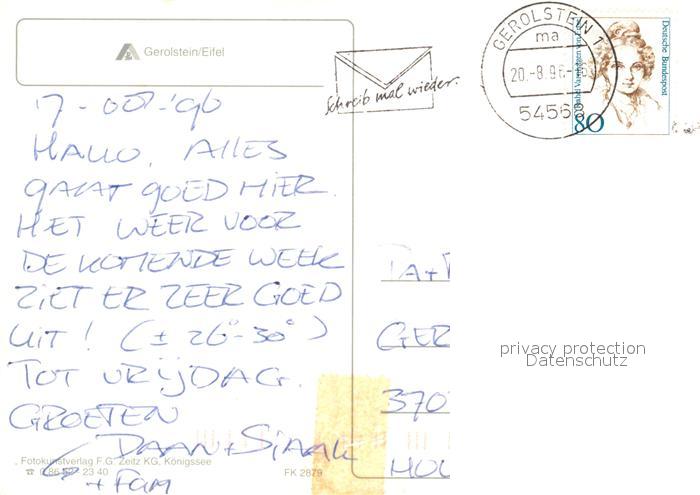 Gerolstein/Eifel
17-08-'96
HALLO, ALLES
GAAT GOED HIER.
HET WEER VOOR
DE KOMENDE WEEK
ZIET ER ZEER GOED
UIT! (± 26°-30°)
TOT VRIJDAG.
GROETEN
DAAN + SJAAK
+ FAM
Fotokunstverlag F.G. Zeitz KG, Königssee
FK 2879
Schreib mal wieder.
GEROLSTEIN 1
ma
20.-8.96
54568
Deutsche Bundespost
80
PA+
GER
370
HOU
privacy protection
Datenschutz